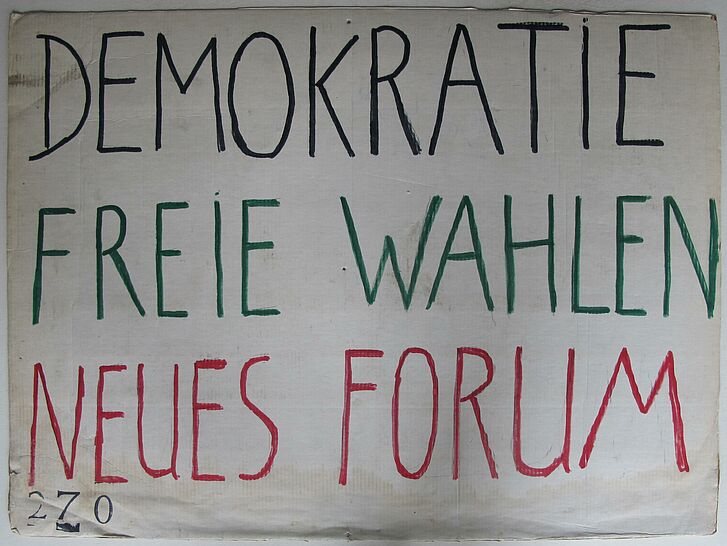 DEMOKRATIE
FREIE WAHLEN
NEUES FORUM
270